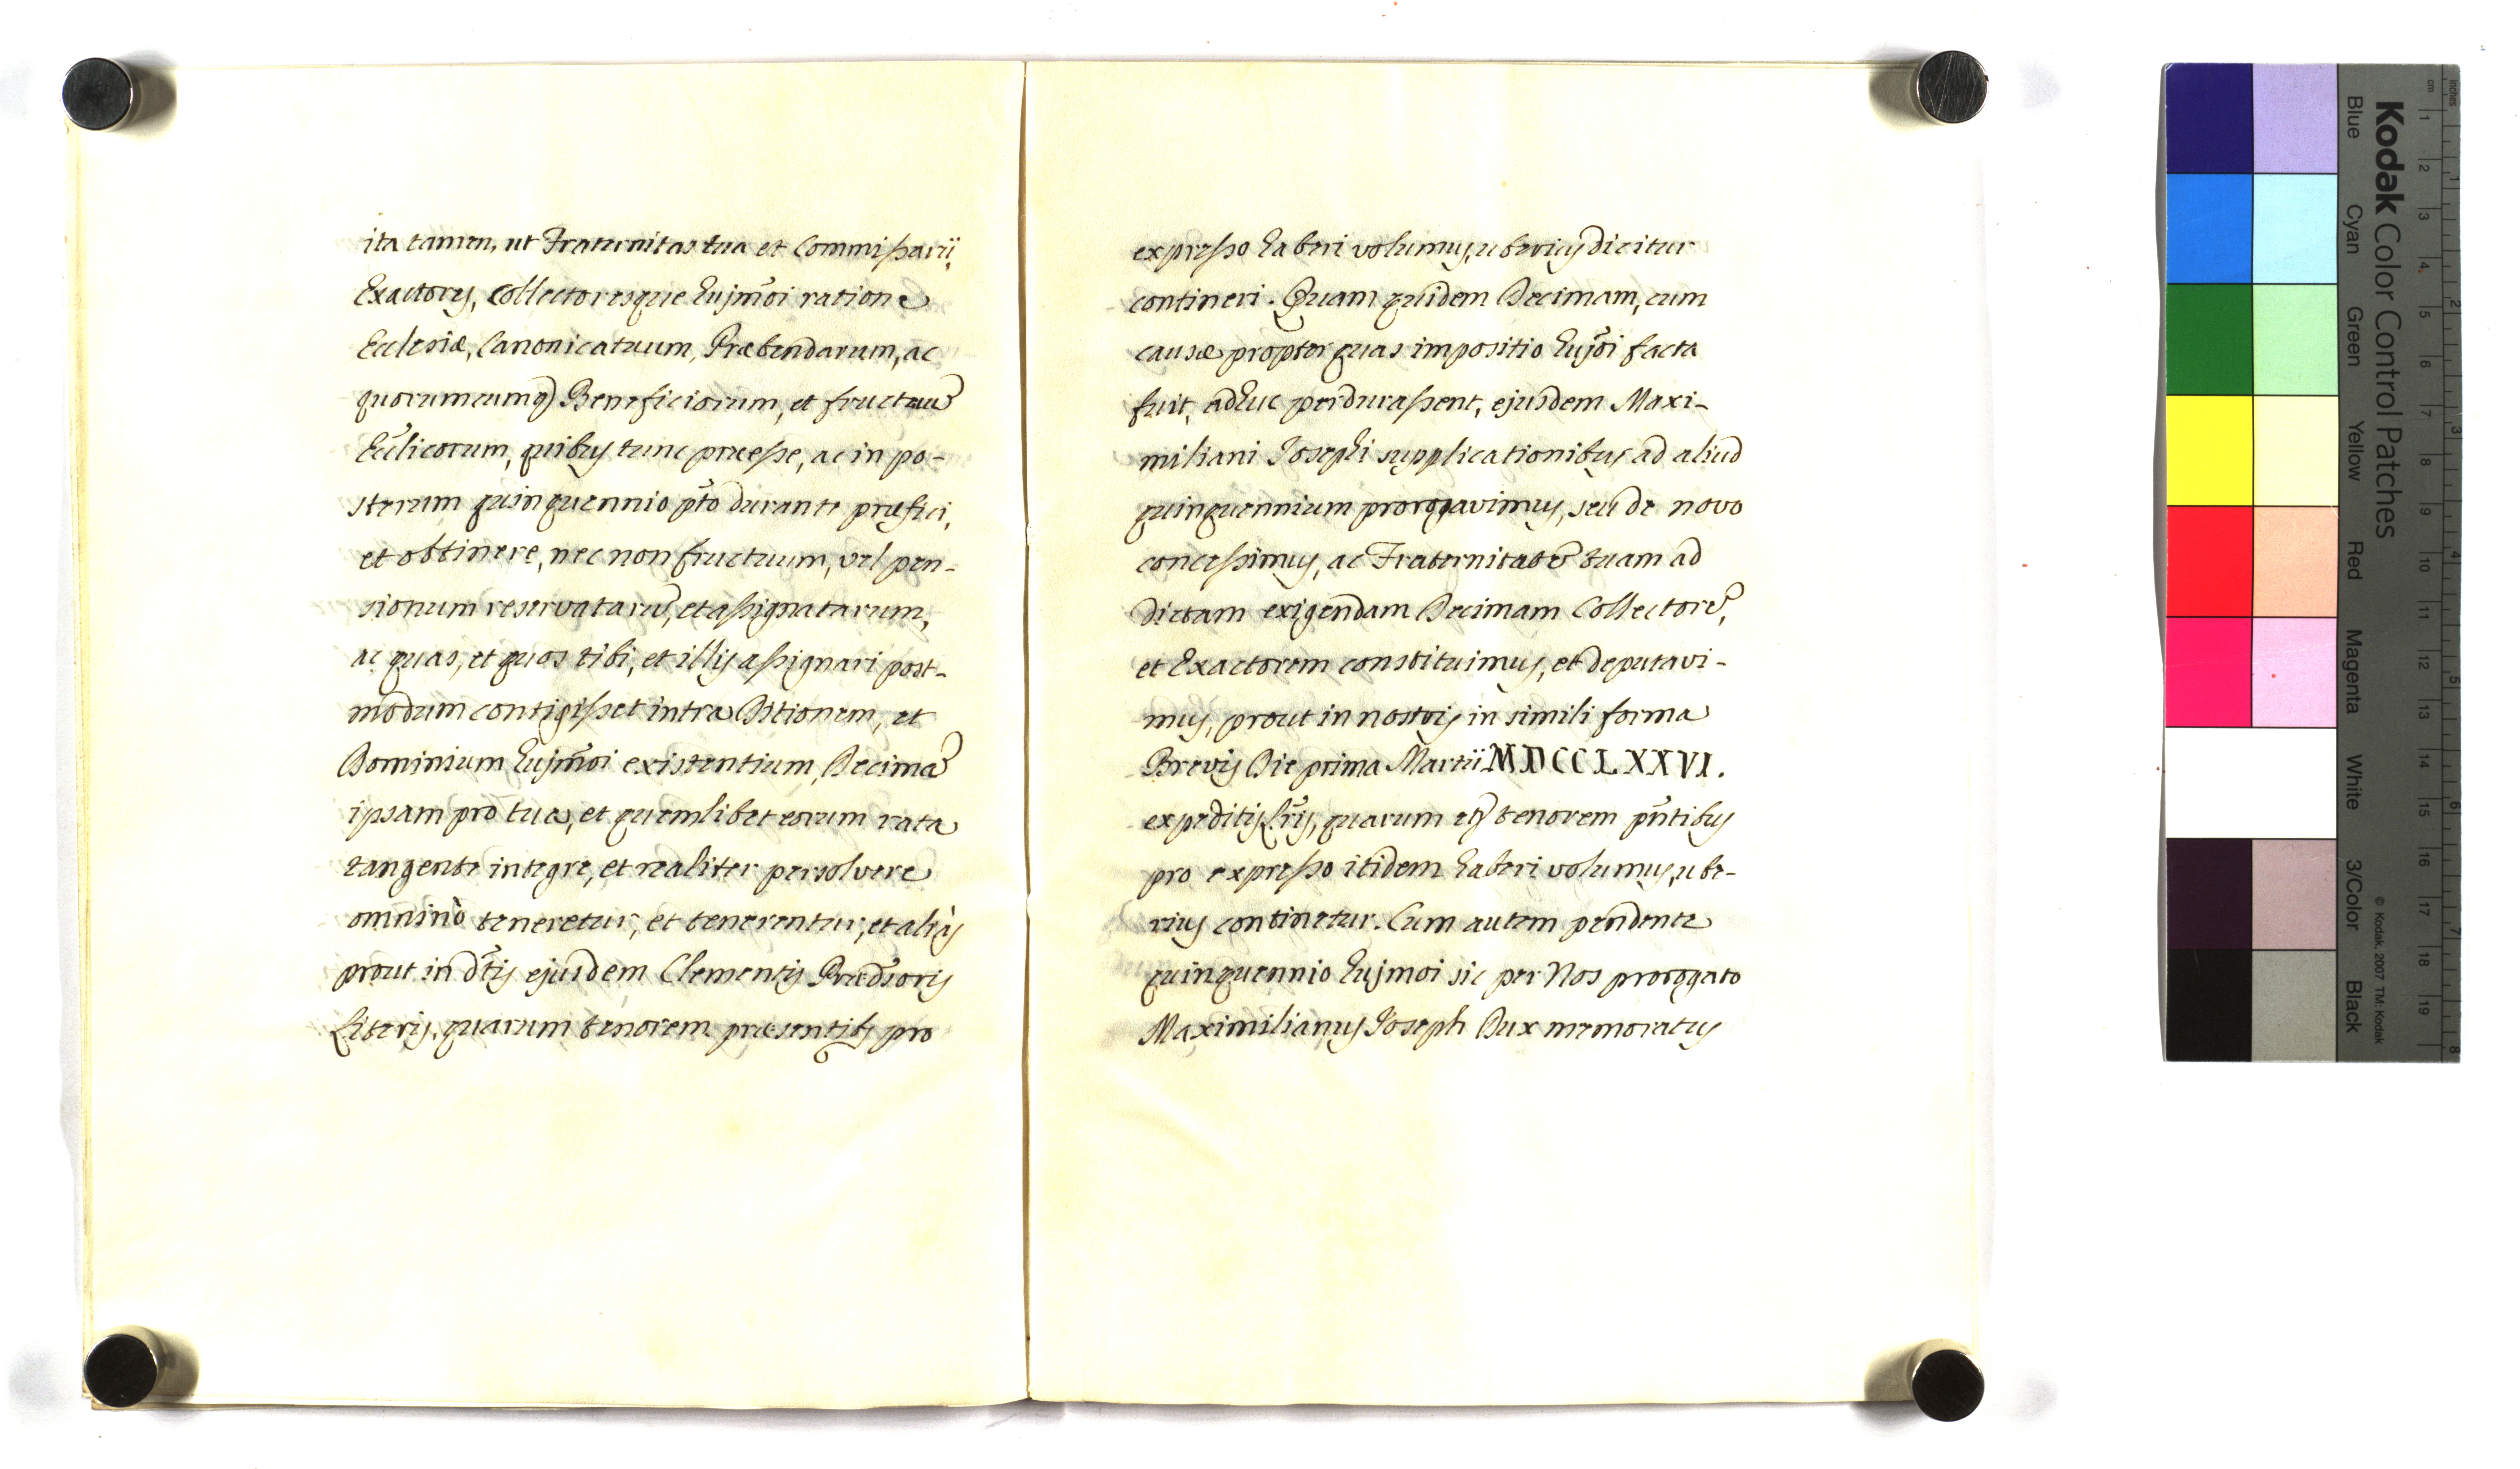 ita tamen, ut Fraternitas tua et Commissarii,
Exactores, Collectoresque hujm̃oi ratione
Ecclesiæ, Canonicatuum, Præbendarum, ac
quorumcumq̃ Beneficiorum, et fructuũ
Ecc̃licorum, quibus tunc præesse, ac in po-
sterum quinquennio pt̃o durante præfici,
et obtinere, nec non fructuum, vel pen-
sionum reservatarũ, et assignatarum,
ac quas, et quos tibi, et illis assignari post-
modum contigisset intra Ditionem, et
Dominium hujm̃oi existentium, Decimã
ipsam pro tua, et quemlibet eorum rata
tangente integre, et realiter persolvere
omninò teneretur, et tenerentur, et aliàs
prout in dt̃is ejusdem Clementis Præd̃soris
Literis, quarum tenorem præsentibs pro
expresso haberi volumus, uberius dicitur
contineri. Quam quidem Decimam, cum
causæ propter quas impositio hujõi facta
fuit, adhuc perdurassent, ejusdem Maxi-
miliani Josephi supplicationibus ad aliud
quinquennium prorogavimus, seu de novo
concessimus, ac Fraternitatẽ tuam ad
dictam exigendam Decimam Collectorẽ,
et Exactorem constituimus, et deputavi-
mus, prout in nostris in simili forma
Brevis Die prima Martii MDCCLXXVI.
expeditis Lr̃is, quarum etõ tenorem pñtibus
pro expresso itidem haberi volumus, ube-
rius continetur. Cum autem pendente
quinquennio hujmoi sic per Nos prorogato
Maximilianus Joseph Dux memoratus
Kodak Color Control Patches
Blue
Cyan
Green
Yellow
Red
Magenta
White
3/Color
Black
© Kodak, 2007 TM: Kodak
cm 1 2 3 4 5 6 7 8 9 10 11 12 13 14 15 16 17 18 19
inches 1 2 3 4 5 6 7 8